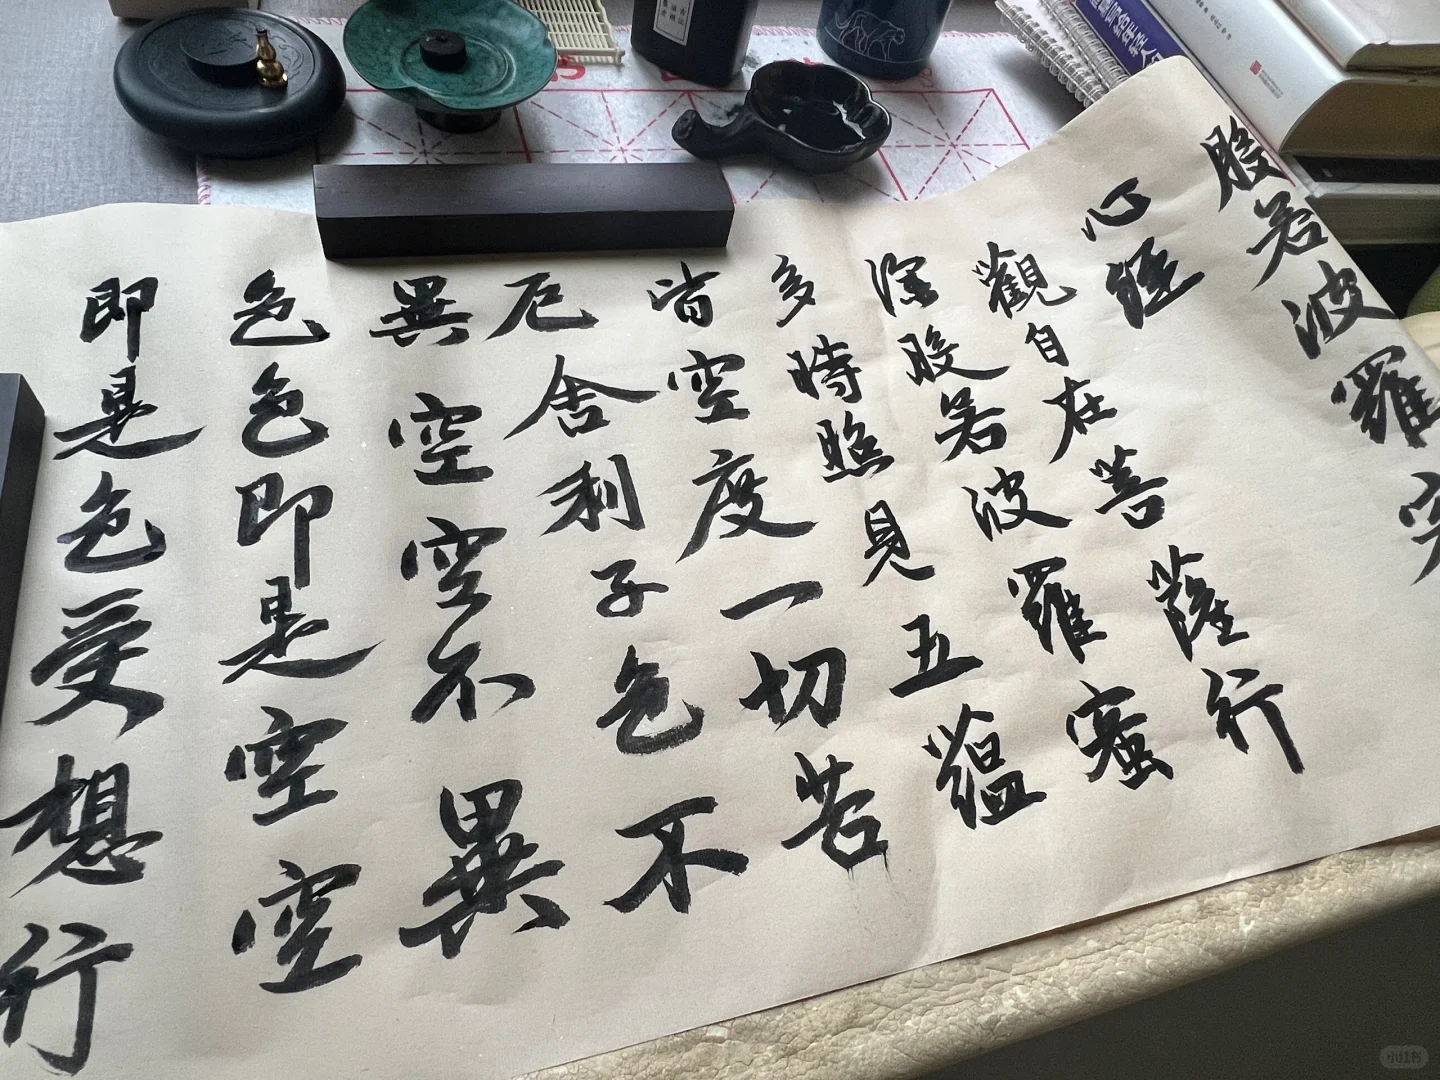 般若波羅
心經
觀自在菩薩行
深般若波羅蜜
多時照見五蘊
皆空度一切苦
厄舍利子色不
異空空不異
色色即是空空
即是色受想行
小红书